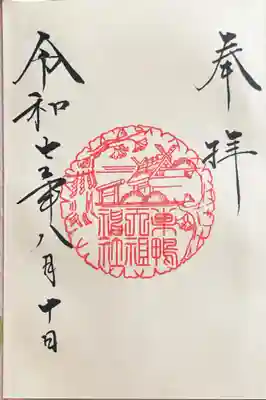 奉拝
巣鴨
天祖
神社
令和七年八月十日